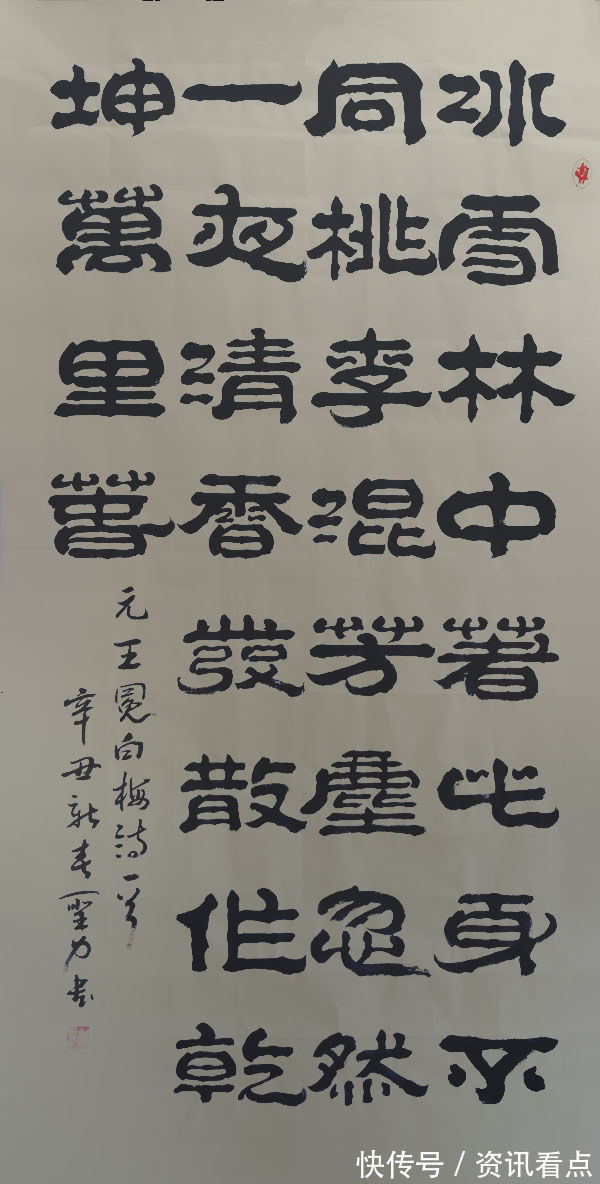 冰雪林中著此身不
同桃李混芳塵忽然
一夜清香發散作乾
坤萬里春
元王冕白梅詩一首
辛丑新春聖力書
快传号 / 资讯看点